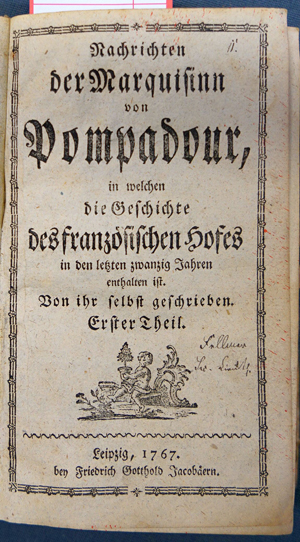 Nachrichten
der Marquisinn
von
Pompadour,
in welchen
die Geschichte
des französischen Hofes
in den letzten zwanzig Jahren
enthalten ist.
Von ihr selbst geschrieben.
Erster Theil.
Leipzig, 1767.
bey Friedrich Gotthold Jacobäern.